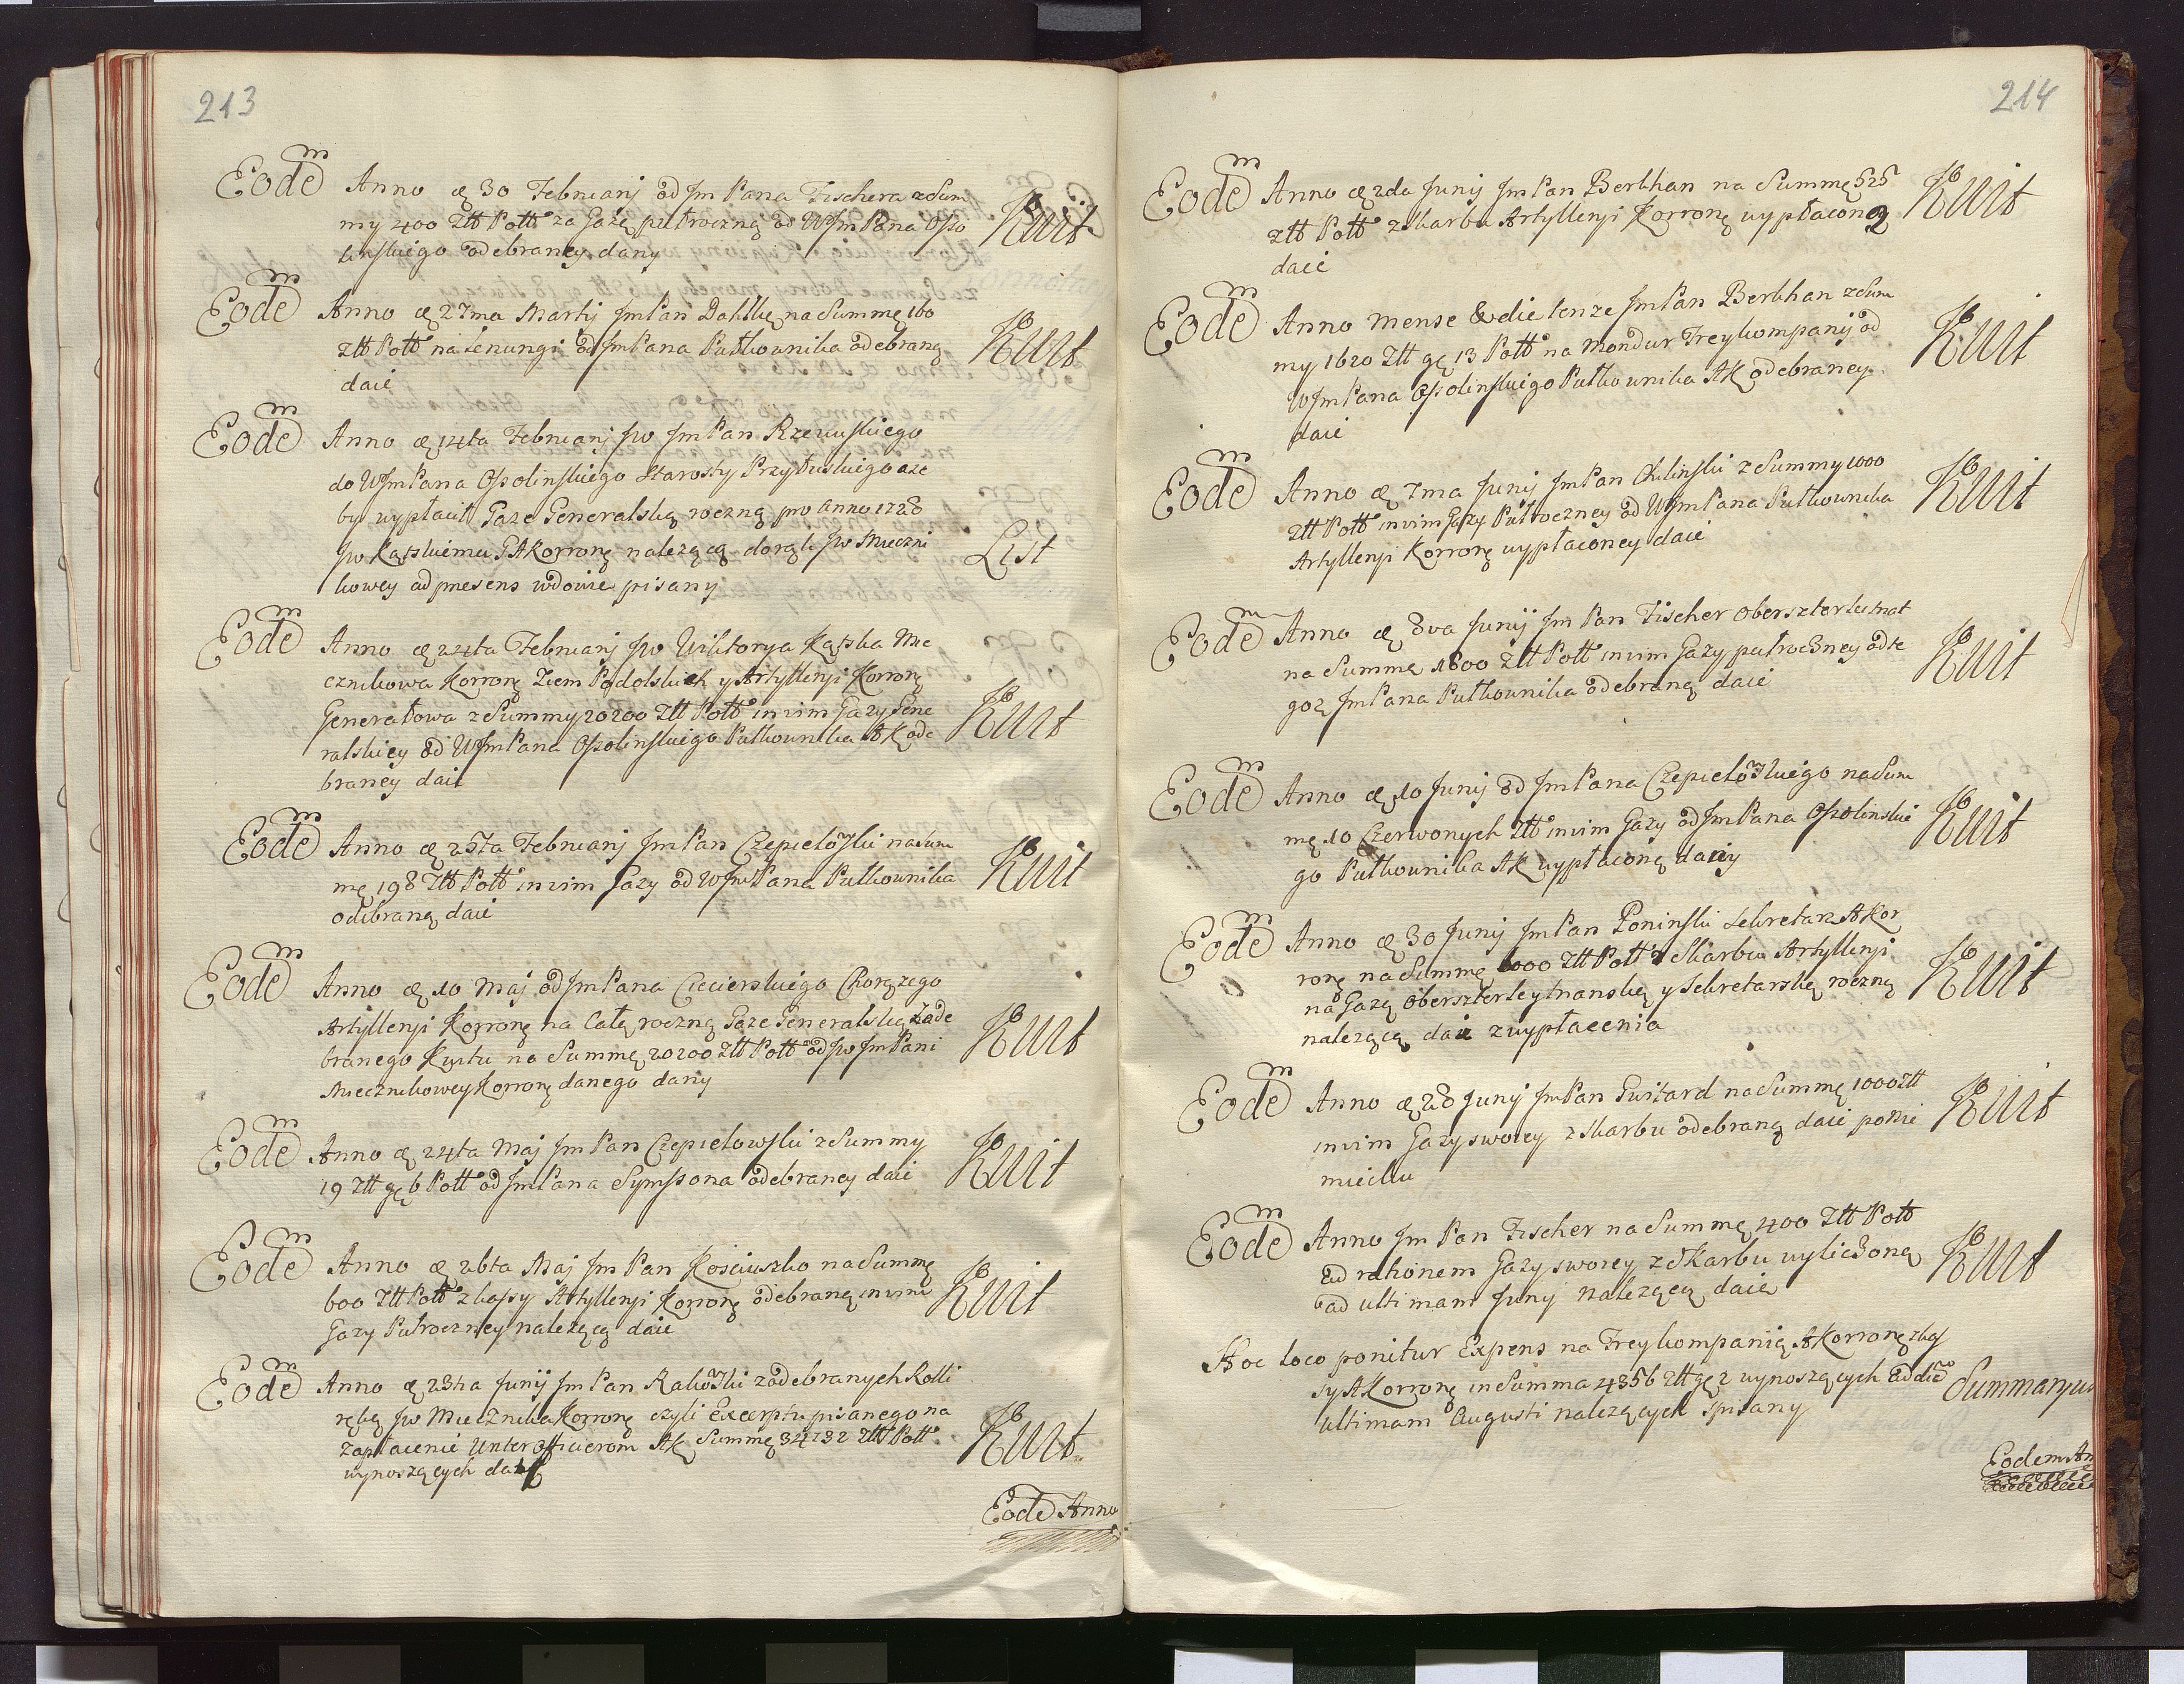 213
Eodem Anno d 30 Februarij od Jm Pana Fischera z Sum
my 400 Ztt Poltt za Gażę pułroczną od WJm Pana Osso
linskiego odebraney dany Kwit
Eodem Anno d 27ma Martij JmPan Dahlke na Summę 160
Ztt Poltt na Lenungi od JmPana Pułkownika odebraną
daie Kwit
Eodem Anno d 14ta Februarij Jw JmPan Rzewuskiego
do WJmPana Ossolinskiego Starosty Przyłuskiego aze
by wypłacił Gaze Generalską roczną pro Anno 1728
Jw Kąskiemu GAKorronę nalezącą do rąk Jw Mieczni
kowey ad presens wdowie pisany List
Eodem Anno d 24ta Februarij Jw Wiktorya Kąska Mie
cznikowa Korronę Ziem Podolskich y Artyllerji Korronę
Generałowa z Summy 20200 Ztt Poltt in vim Gazy Gene
ralskiey od WJmPana Ossolinskiego Pułkownika AK ode
braney dait Kwit
Eodem Anno d 25ta Februarij JmPan Czepielowski na Sum
mę 198 Ztt Poltt in vim Gazy od WJmPana Pułkownika
odebraną daie Kwit
Eodem Anno d 10 Maj od JmPana Ciecierskiego Chorązego
Artyllerji Korronę na Całą roczną Gaze Generalską z ode
branego Kwitu na Summę 20200 Ztt Poltt od Jw JmPani
Miecznikowey Korronę danego dany Kwit
Eodem Anno d 24ta Maj Jm Pan Czepielowski z Summy
19 Ztt gę 6 Poltt od JmPana Symssona odebraney daie Kwit
Eodem Anno d 26ta Maj Jm Pan Kościuszko na Summę
600 Ztt Poltt z kassy Artyllerji Korronę odebraną in vim
Gazy Pułroczney nalezącą daie Kwit
Eodem Anno d 23tia Junij Jm Pan Rakowski z odebranych Kolli
rębę Jw Miecznika Korronę czyli Excerptu pisanego na
zapłacenie Unterofficierom AK Summę 34732 Ztt Poltt
wynoszących daie Kwit
Eode Anno
214
Eodem Anno d 2da Junij Jm Pan Berkhan na Summę 525
Ztt Poltt z skarbu Artyllerji Korronę wypłaconą
daie Kwit
Eodem Anno mense & die tenze JmPan Berkhan z Sum
my 1620 Ztt gę 13 Poltt na Mondur Freykompanij od
WJmPana Ossolinskiego Pułkownika AK odebraney
daie Kwit
Eodem Anno d 7ma Junij JmPan Chilinski z Summy 1000
Ztt Poltt in vim Gazy Pułroczney od WJmPana Pułkownika
Artyllerji Korronę wypłaconey daie Kwit
Eodem Anno d 8va Junij Jm Pan Fischer Oberszterleitnat
na Summę 1800 Ztt Poltt in vim Gazy pułroczney od te
goz JmPana Pułkownika odebraną daie Kwit
Eodem Anno d 10 Junij od JmPana Czepielowskiego na Sum
mę 10 Czerwonych Ztt in vim Gazy od JmPana Ossolinskie
go Pułkownika AK wypłaconę dany Kwit
Eodem Anno d 30 Junij JmPan Poninski Sekretarz AKor
ronę na Summę 1000 Ztt Poltt z Skarbu Artyllerji
na Gazę Oberszterleytnanską y Sekretarską roczną
nalezącą daie z wypłacenia Kwit
Eodem Anno d 28 Junij JmPan Guitard na Summę 1000 Ztt
in vim Gazy swoiey z skarbu odebraną daie po Nie
miecku Kwit
Eodem Anno Jm Pan Fischer na Summę 400 Ztt Poltt
ad rationem Gazy swoiey z Skarbu wyliczoną
ad ultimam Junij nalezącą daie Kwit
Hoc loco ponitur Expens na Freykompanią AKorronę z kas
sy AKorronę in Summa 4356 Ztt gę 2 wynoszących ad diem
ultimam Augusti nalezących spisany Summaryu
Eodem An